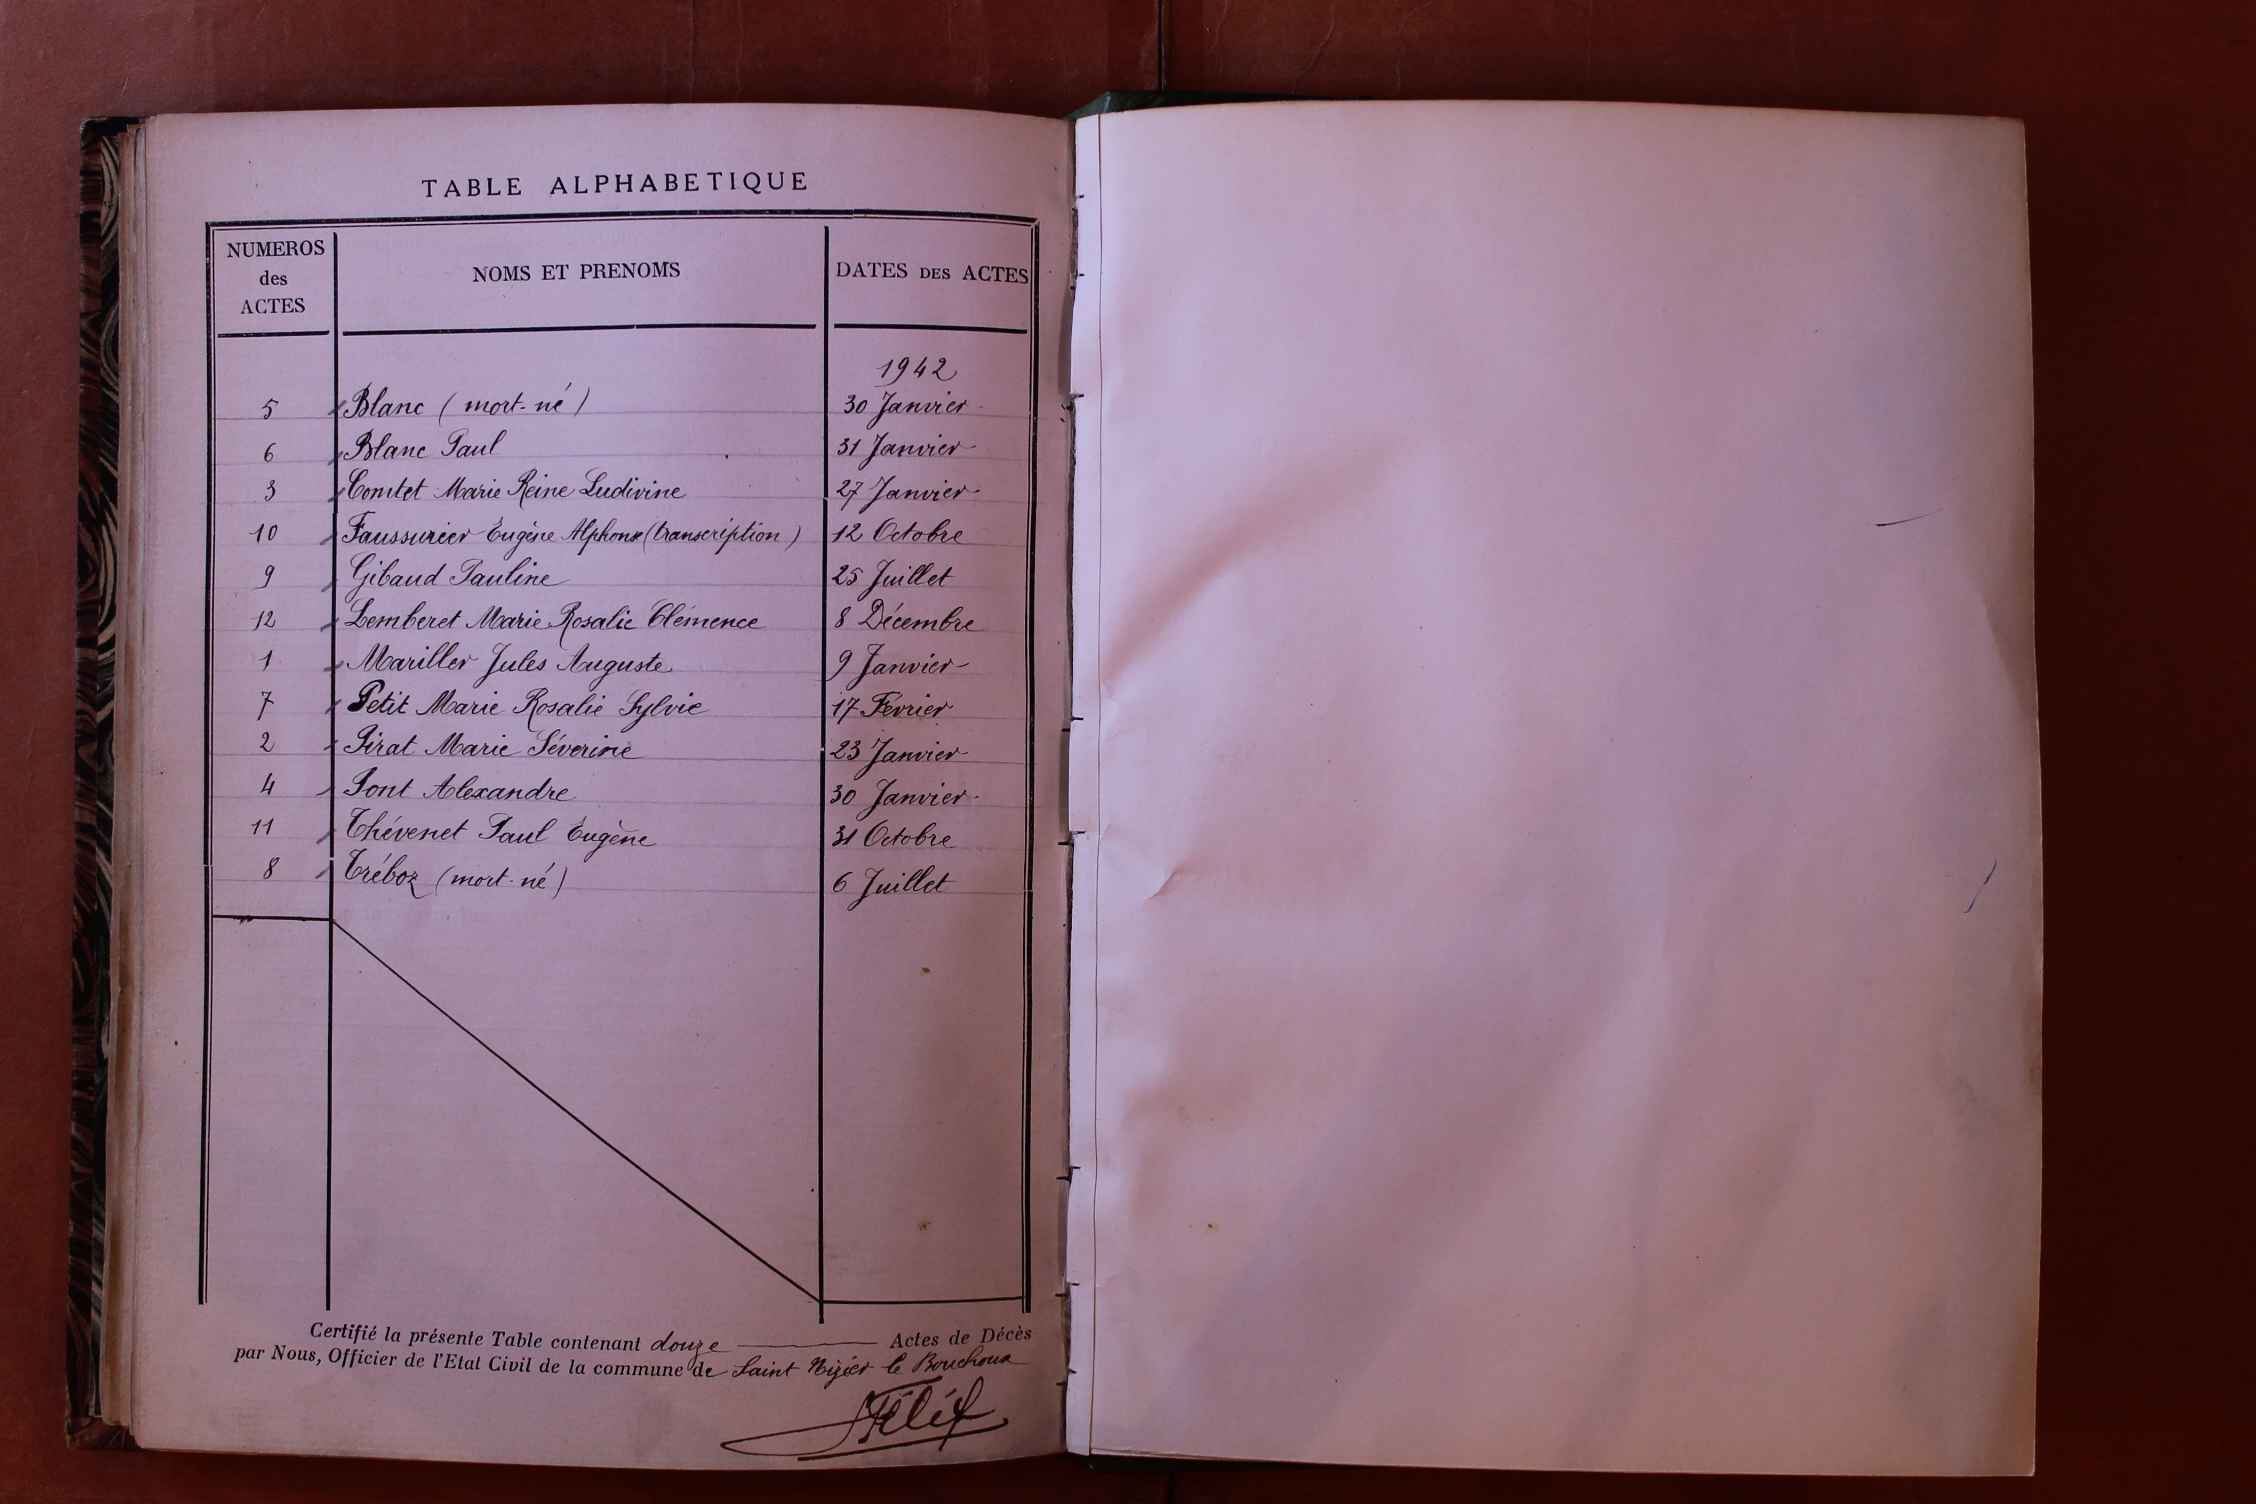 TABLE ALPHABETIQUE
NUMEROS des ACTES NOMS ET PRENOMS DATES DES ACTES
1942
5 Blanc (mort-né) 30 Janvier
6 Blanc Paul 31 Janvier
3 Comtet Marie Reine Ludivine 27 Janvier
10 Faussurier Eugène Alphonse (transcription) 12 Octobre
9 Gibaud Pauline 25 Juillet
12 Lemberet Marie Rosalie Clémence 8 Décembre
1 Mariller Jules Auguste 9 Janvier
7 Petit Marie Rosalie Sylvie 17 Février
2 Pirat Marie Séverine 23 Janvier
4 Pont Alexandre 30 Janvier
11 Thévenet Paul Eugène 31 Octobre
8 Tréboz (mort-né) 6 Juillet
Certifié la présente Table contenant douze Actes de Décès
par Nous, Officier de l'Etat Civil de la commune de Saint Nizier le Bouchoux